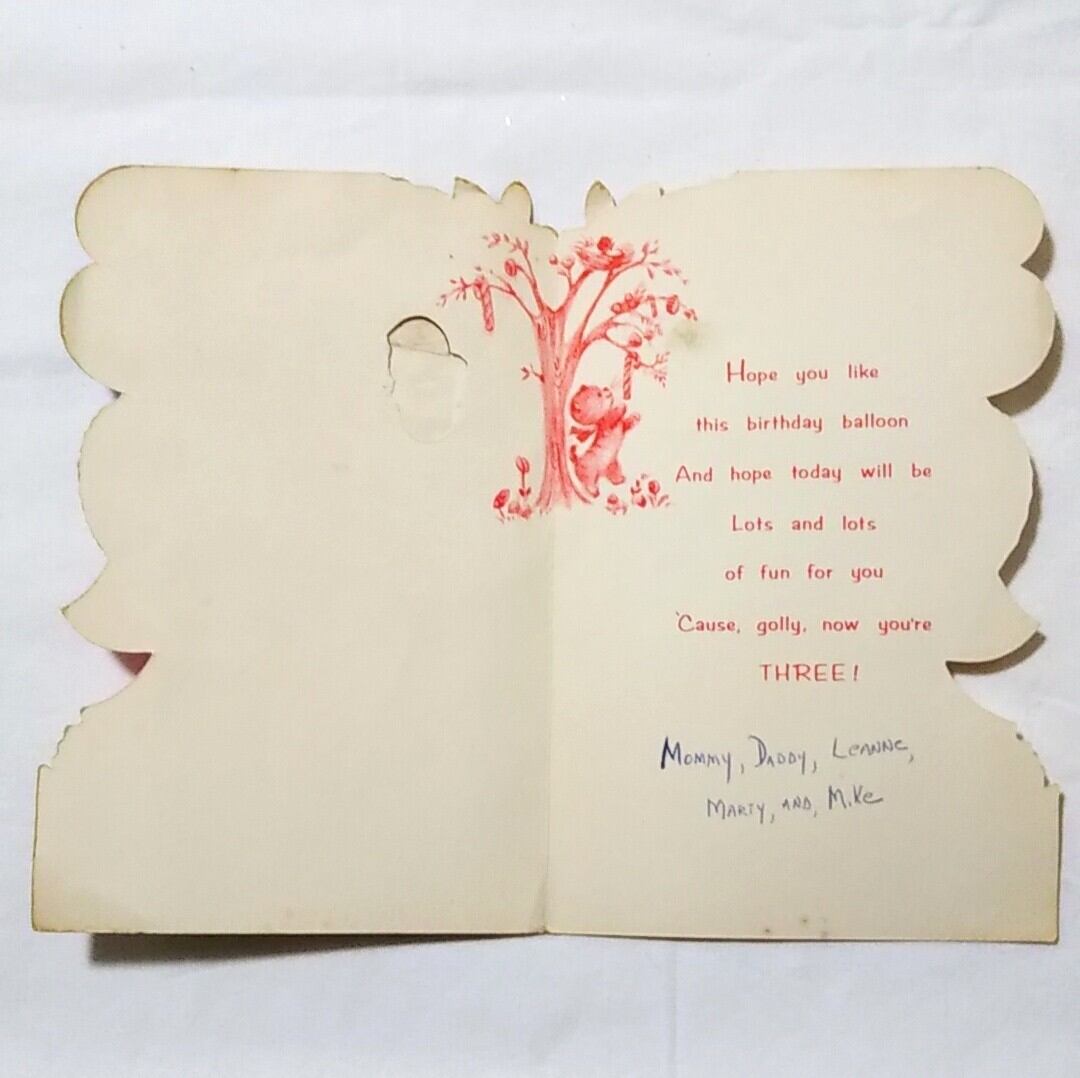 Hope you like
this birthday balloon
And hope today will be
Lots and lots
of fun for you
'Cause, golly, now you're
THREE!
Mommy, Daddy, Leanne,
Marty, and, Mike